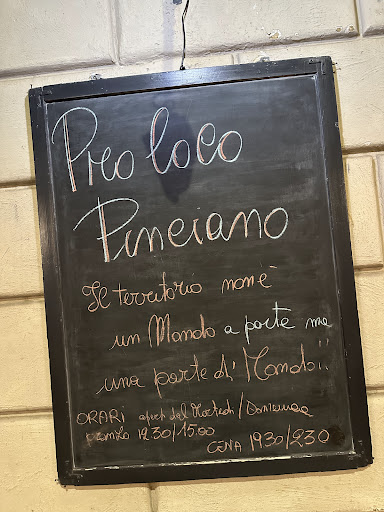 Pro loco
Pinciano
Il territorio non è
un Mondo a parte ma
una parte di Mondo!!
ORARI aperti dal Martedi / Domenica
pranzo 12 30/15.00
CENA 19 30/23 0